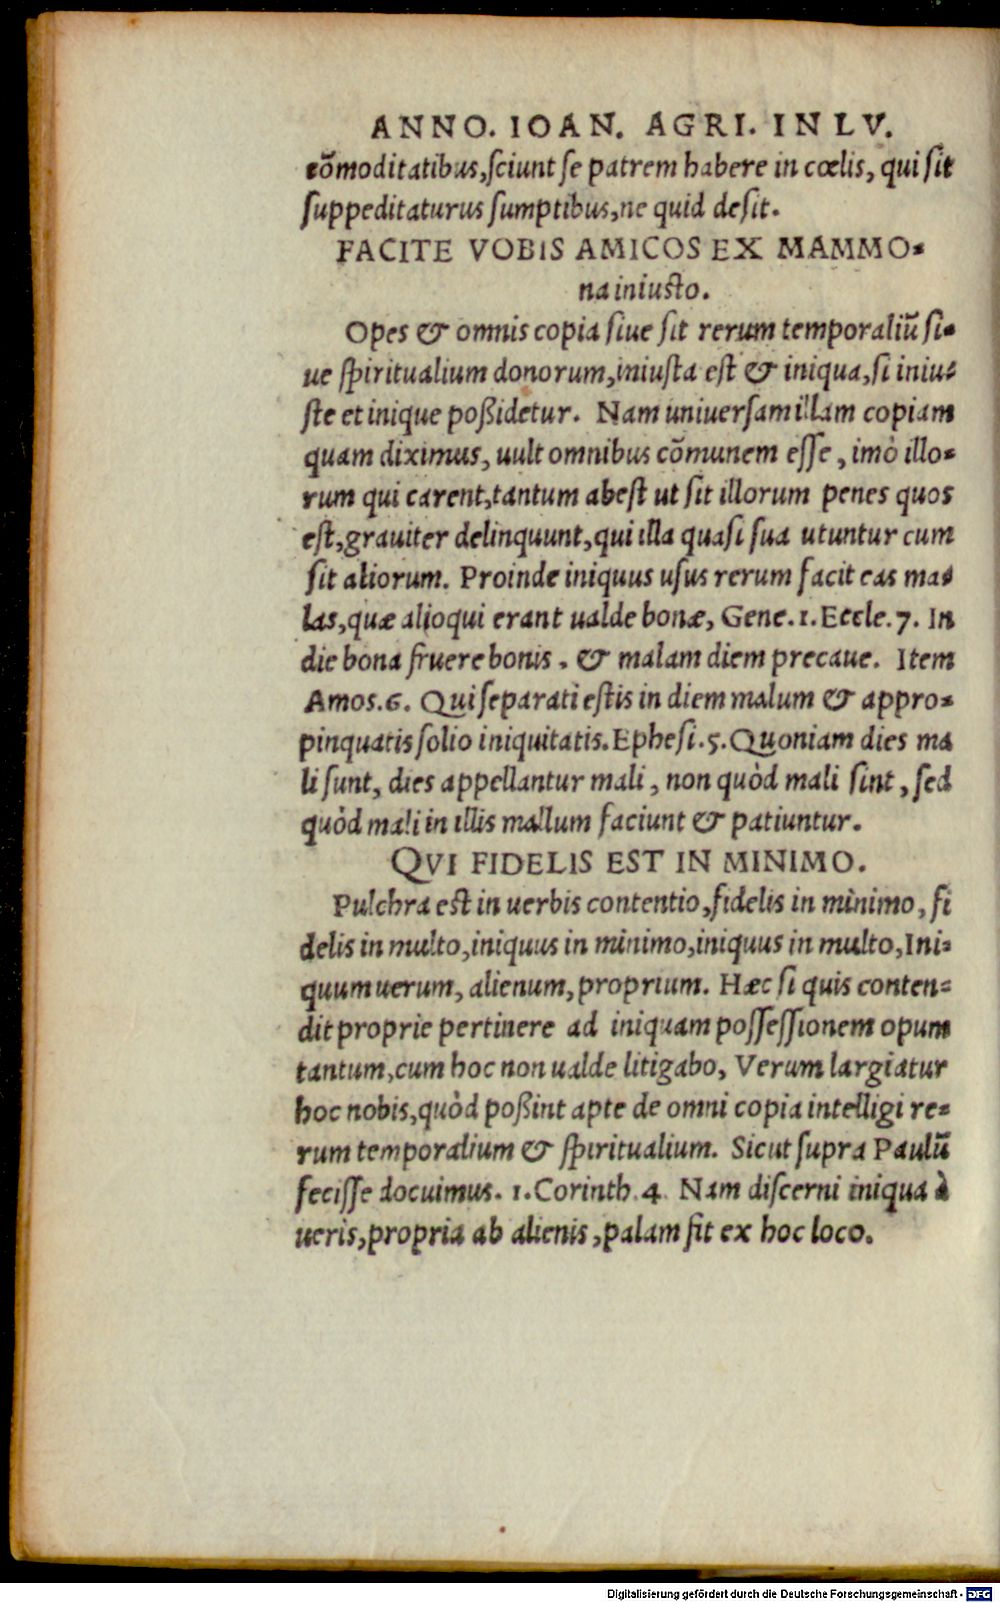 ANNO. IOAN. AGRI. IN LV.
cõmoditatibus,ſciunt ſe patrem habere in cœlis, qui ſit
ſuppeditaturus ſumptibus,ne quid deſit.
FACITE VOBIS AMICOS EX MAMMO-
na iniuſto.
Opes & omnis copia ſiue ſit rerum temporaliũ ſi-
ue ſpiritualium donorum,iniuſta eſt & iniqua,ſi iniu-
ſte et inique poßidetur. Nam uniuerſam illam copiam
quam diximus, uult omnibus cõmunem eſſe , imò illo-
rum qui carent,tantum abeſt ut ſit illorum penes quos
eſt,grauiter delinquunt,qui illa quaſi ſua utuntur cum
ſit aliorum. Proinde iniquus uſus rerum facit eas ma-
las,quæ alioqui erant ualde bonæ, Gene.1.Eccle.7. In
die bona fruere bonis . & malam diem precaue. Item
Amos.6. Qui ſeparati eſtis in diem malum & appro-
pinquatis ſolio iniquitatis.Epheſi.5.Quoniam dies ma
li ſunt, dies appellantur mali , non quòd mali ſint , ſed
quòd mali in illis mallum faciunt & patiuntur.
QVI FIDELIS EST IN MINIMO.
Pulchra eſt in uerbis contentio,fidelis in mìnimo, fi
delis in multo,iniquus in minimo,iniquus in multo,Ini-
quum uerum, alienum,proprium. Hæc ſi quis conten-
dit proprie pertinere ad iniquam poſſeſſionem opum
tantum,cum hoc non ualde litigabo, Verum largiatur
hoc nobis,quòd poßint apte de omni copia intelligi re-
rum temporalium & ſpiritualium. Sicut ſupra Paulũ
feciſſe docuimus. 1.Corinth.4. Nam diſcerni iniqua à
ueris,propria ab alienis,palam fit ex hoc loco.
Digitalisierung gefördert durch die Deutsche Forschungsgemeinschaft - DFG